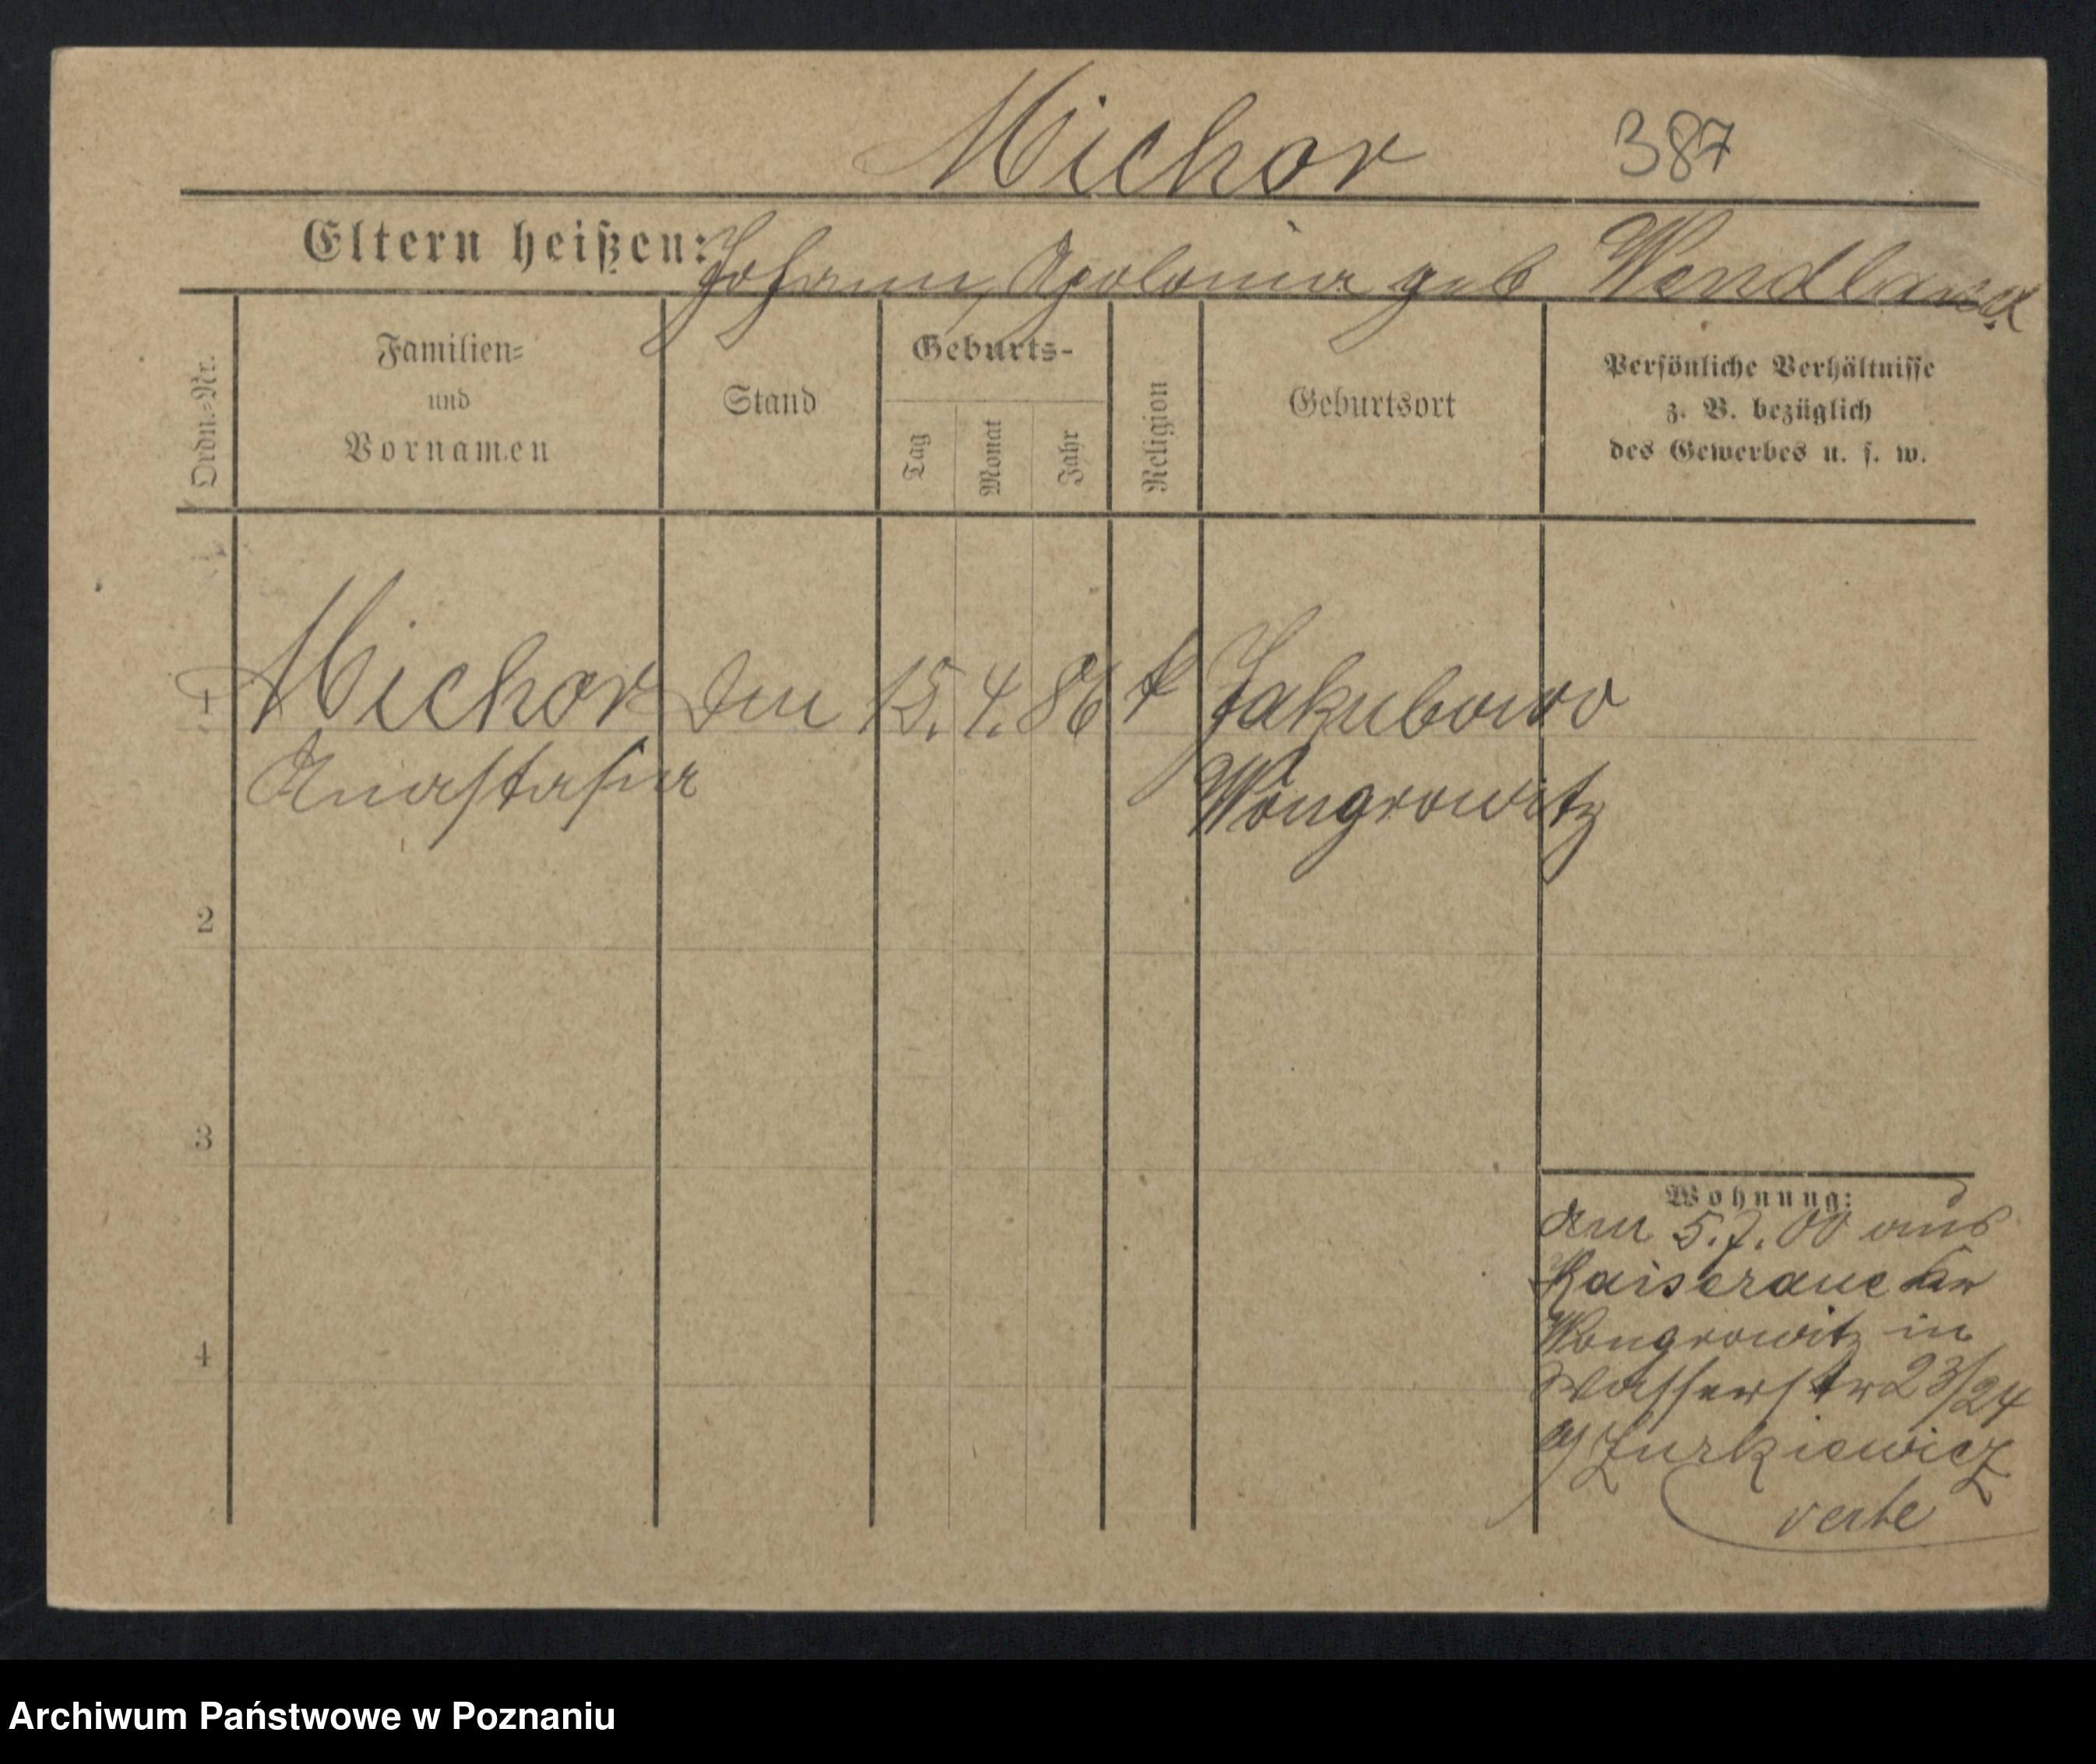 Michor 387
Eltern heißen: Johann, Apolonia geb Wendland
Ordn.-Nr.
Familien-
und
Vornamen
Stand
Geburts-
Tag
Monat
Jahr
Religion
Geburtsort
Persönliche Verhältnisse
z. B. bezüglich
des Gewerbes u. s. w.
1 Michor 15. 4. 86 k Jakubowo
Anastasia Wongrowitz
2
3
4
Wohnung:
am 5.7.00 aus
Kaiseraue Kr
Wongrowitz in
Wasserstr 23/24
Żurkiewicz
verte
Archiwum Państwowe w Poznaniu